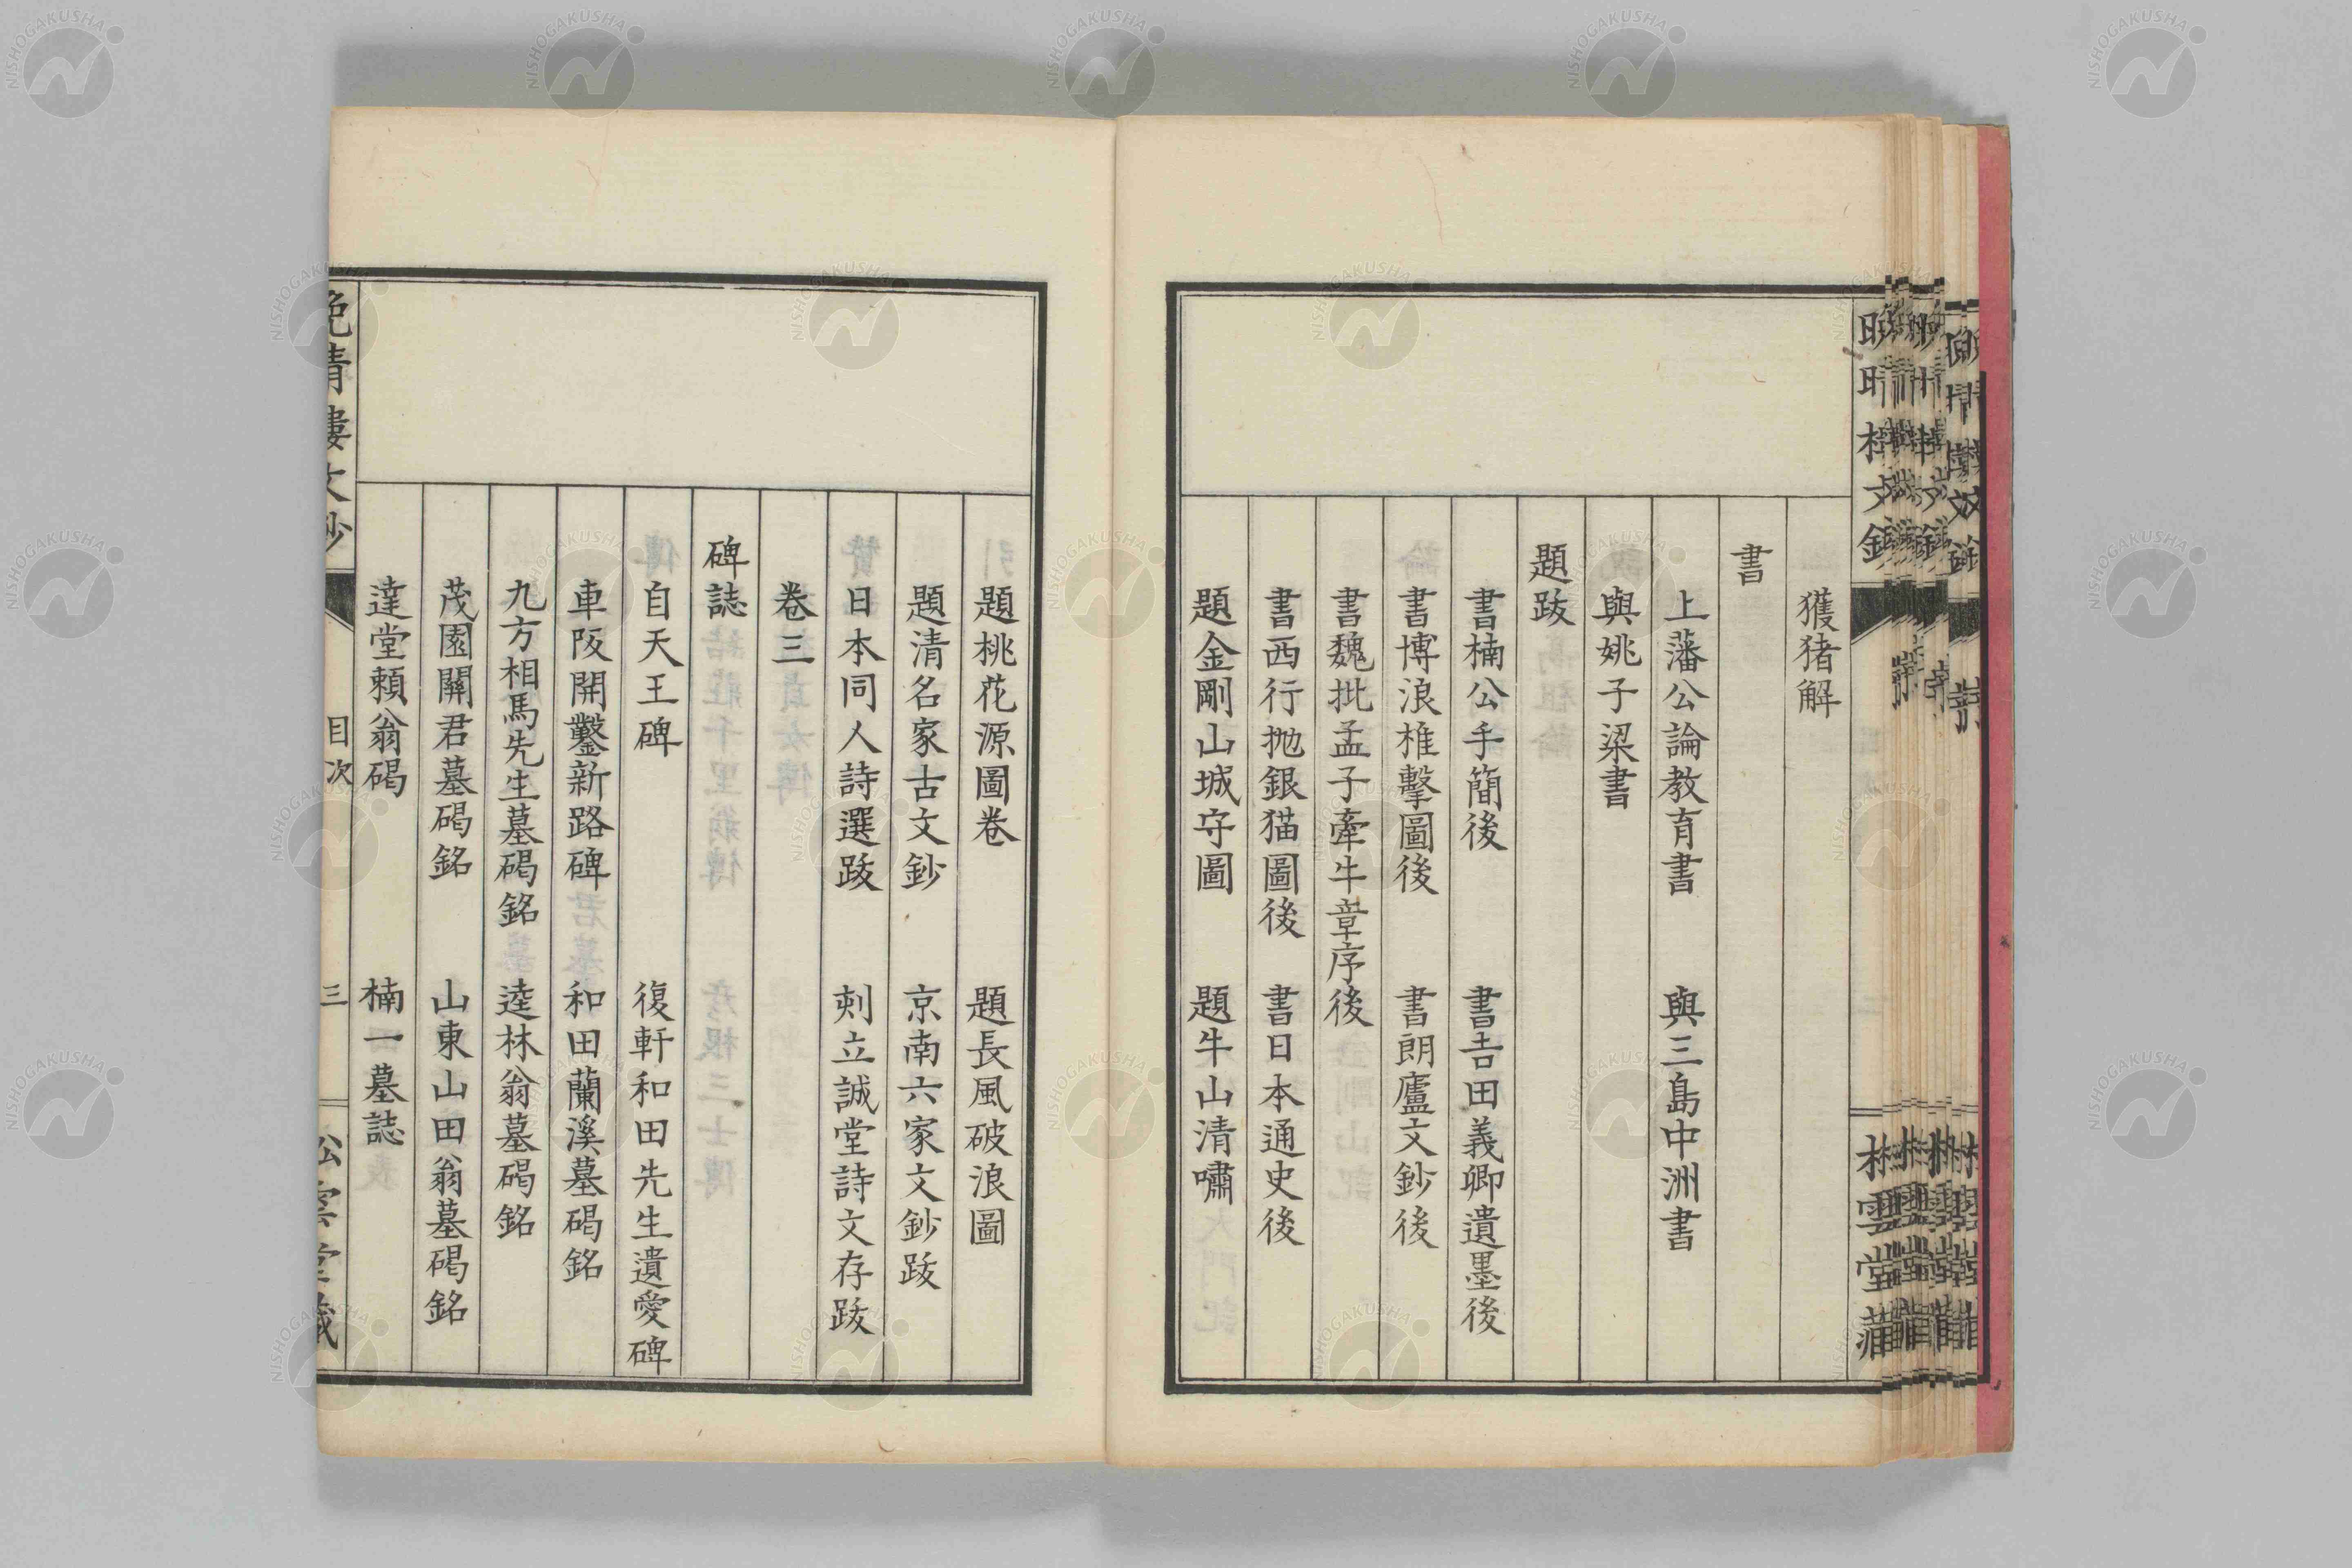 獲猪解
書
上藩公論教育書　與三島中洲書
與姚子梁書
題跋
書楠公手簡後　書吉田義卿遺墨後
書博浪椎擊圖後　書朗廬文鈔後
書魏批孟子牽牛章序後
書西行抛銀猫圖後　書日本通史後
題金剛山城守圖　題牛山清嘯
題桃花源圖卷　題長風破浪圖
題清名家古文鈔　京南六家文鈔跋
日本同人詩選跋　刺立誠堂詩文存跋
卷三
碑誌
自天王碑　復軒和田先生遺愛碑
車阪開鑿新路碑　和田蘭溪墓碣銘
九方相馬先生墓碣銘　逵林翁墓碣銘
茂園關君墓碣銘　山東山田翁墓碣銘
達堂賴翁碣　楠一墓誌
晚晴樓文鈔　目次　三　松雲堂藏
NISHOGAKUSHA